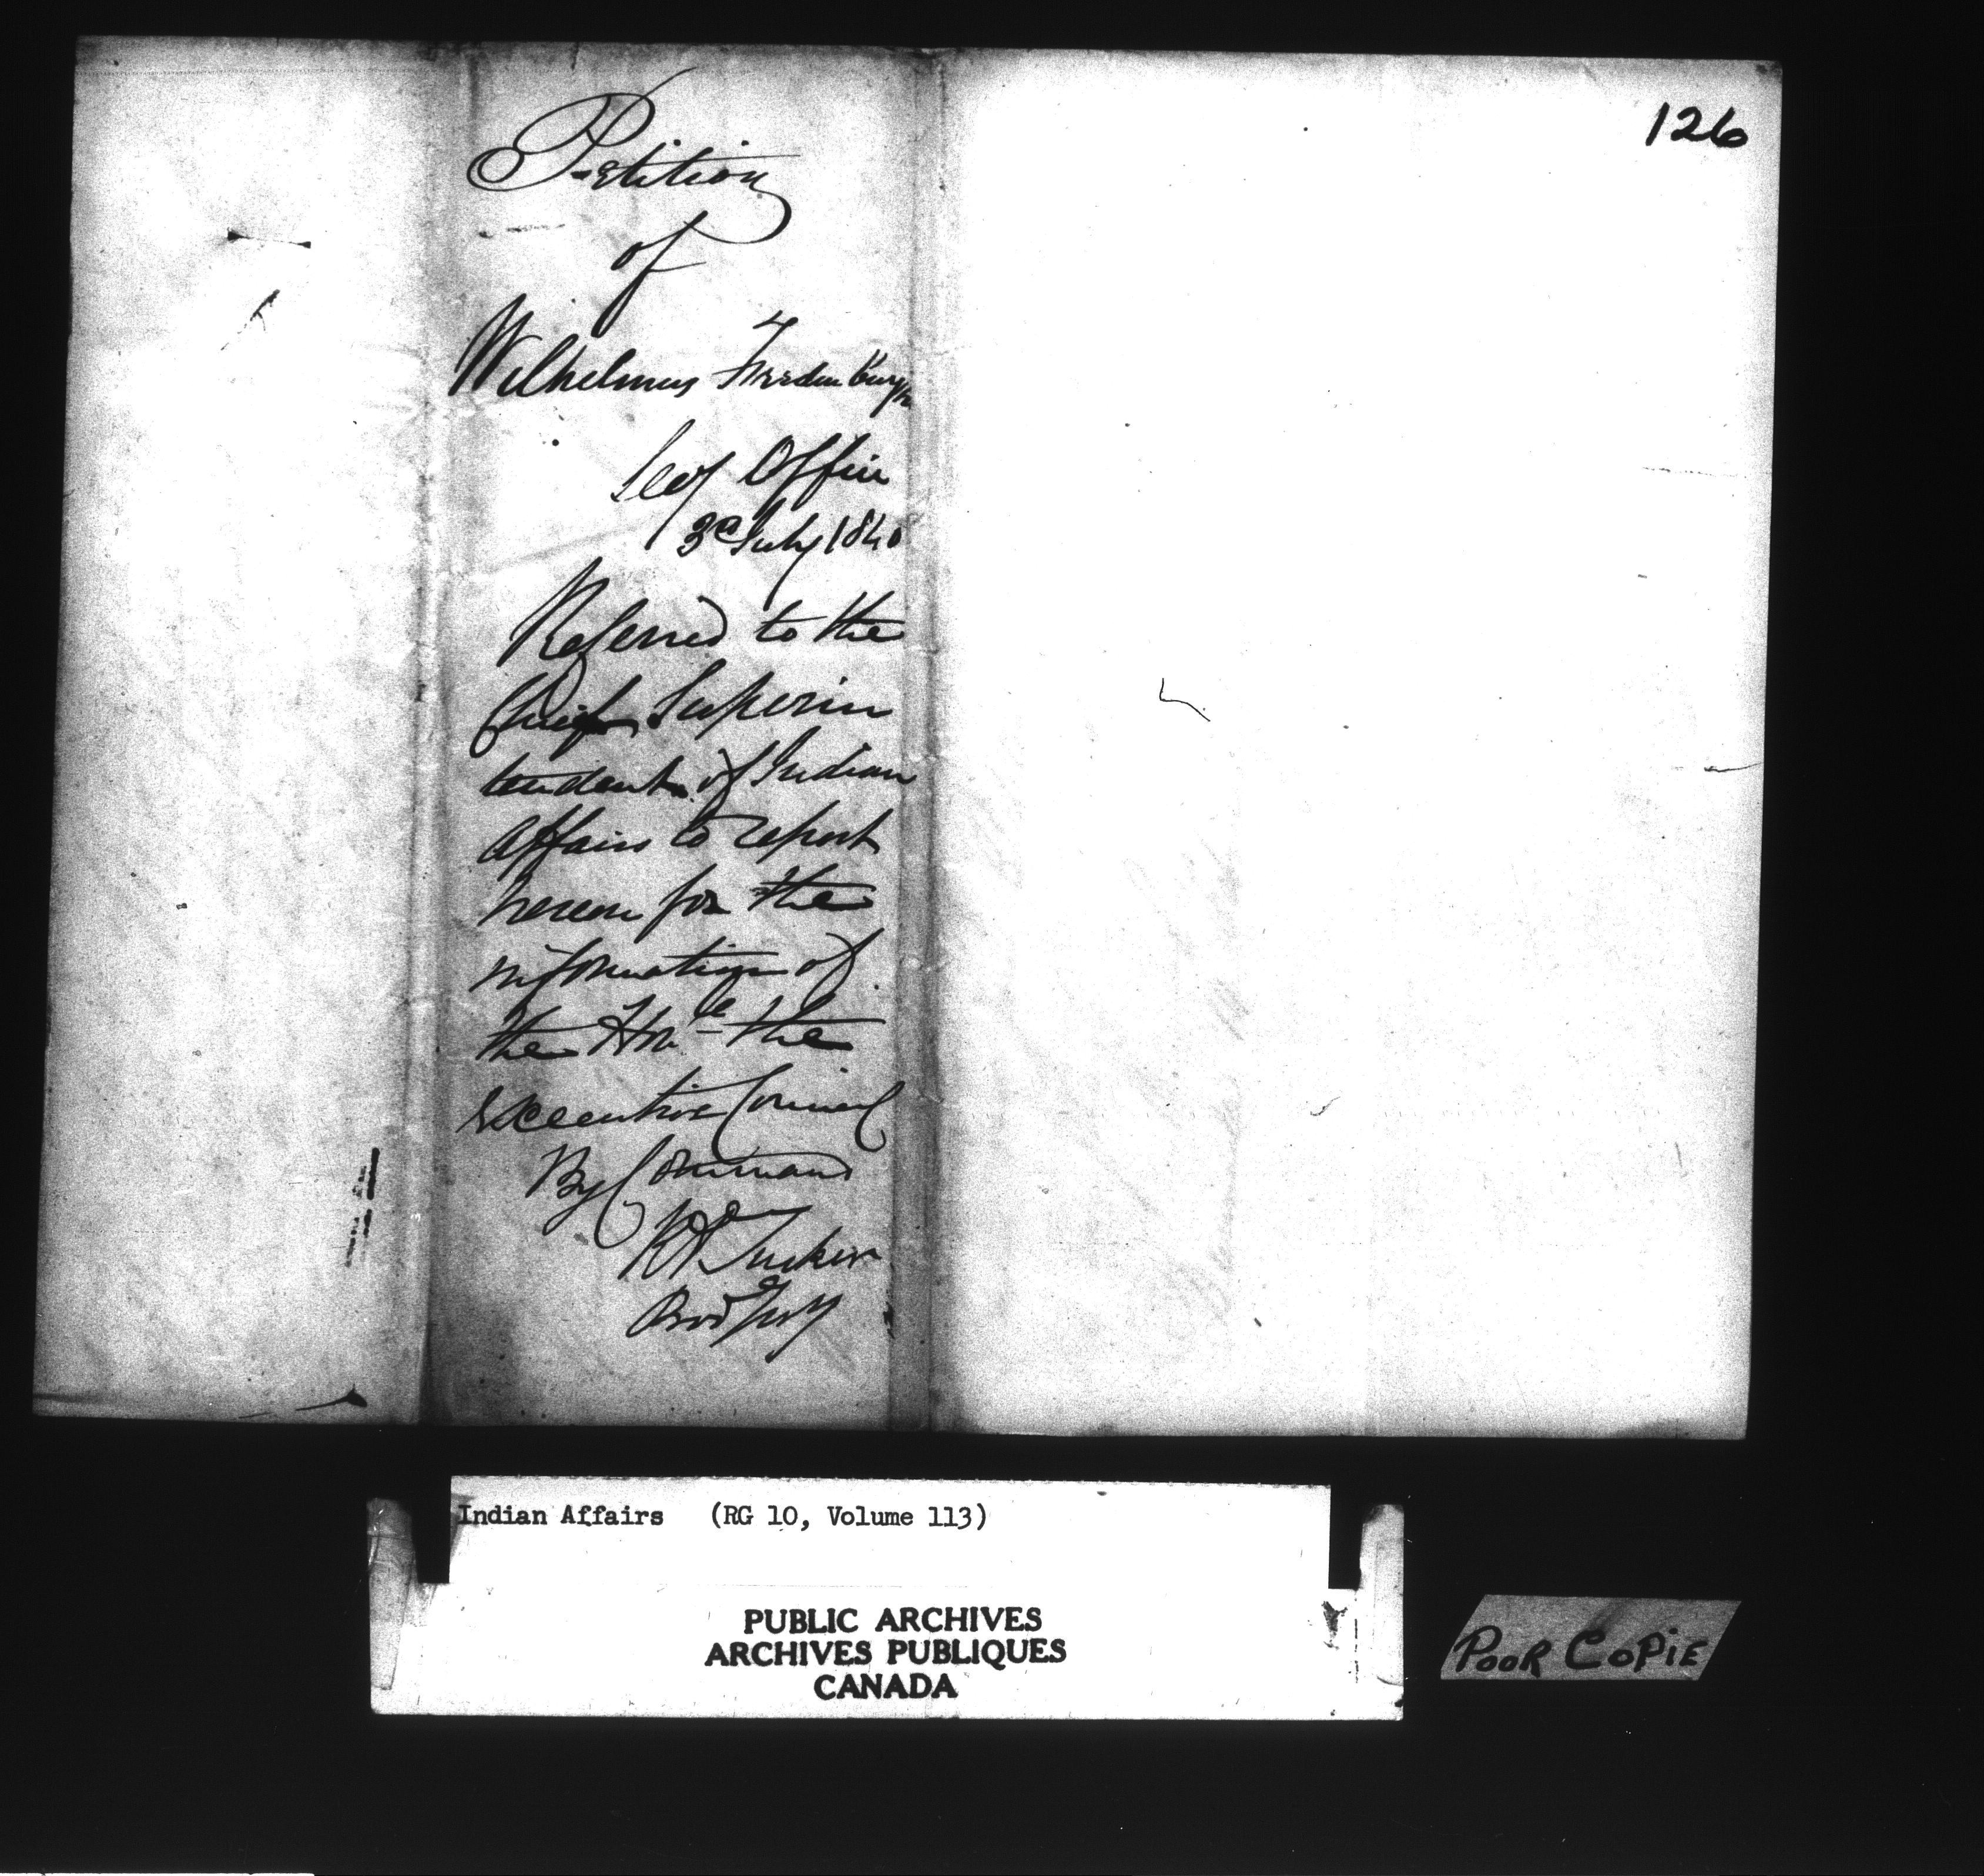 126
Petition
of
Wilhelmus Freedenburgh
Secy Office
3d July 1840
Referred to the
Chief Superin
tendent of Indian
Affairs to report
hereon for the
information of
the Honle the
Executive Council
By Command
R A Tucker
Indian Affairs (RG 10, Volume 113)
PUBLIC ARCHIVES
ARCHIVES PUBLIQUES
CANADA
POOR COPIE